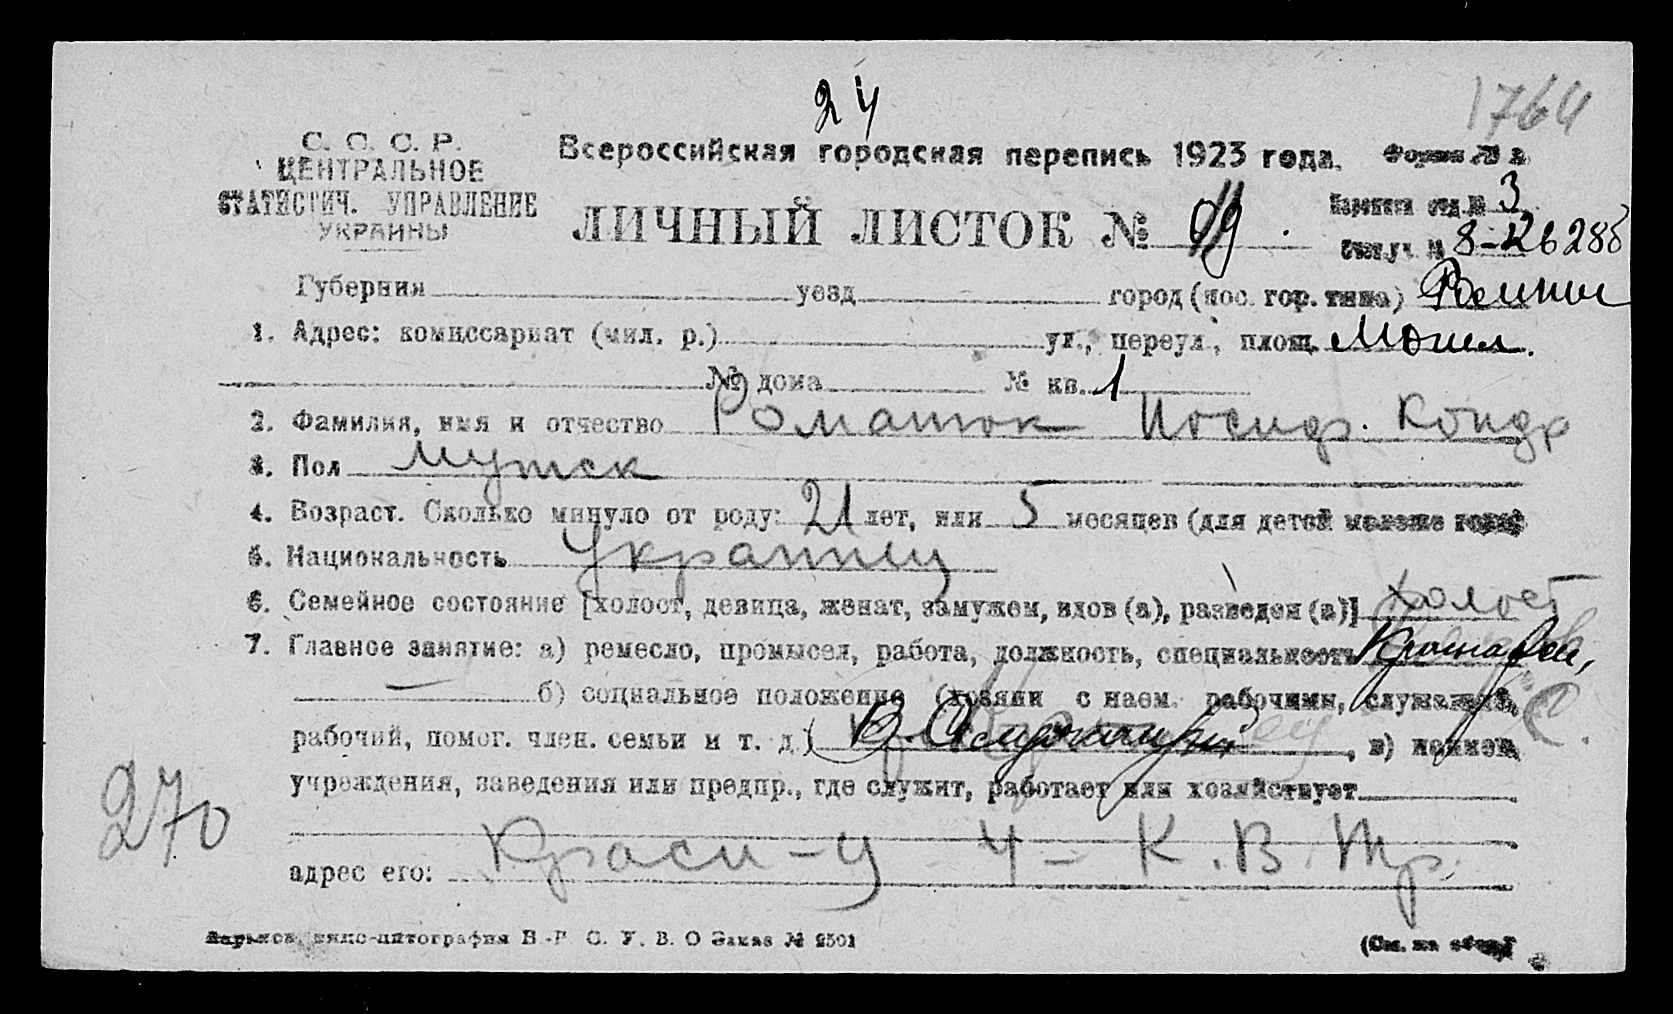 24
1764
С. С. С. Р.
ЦЕНТРАЛЬНОЕ
СТАТИСТИЧ. УПРАВЛЕНИЕ
УКРАИНЫ
Всероссийская городская перепись 1923 года.
Форма № 2
ЛИЧНЫЙ ЛИСТОК №
№ 3
№ 8-
Губерния уезд город (пос. гор. типа)
1. Адрес: комиссариат (мил. р.) ул., переул., площ.
№ дома № кв. 1
2. Фамилия, имя и отчество Романюк Иосиф. Кондр
3. Пол Мужск
4. Возраст. Сколько минуло от роду: 21 лет, или 5 месяцев (для детей моложе года)
5. Национальность Украинец
6. Семейное состояние [холост, девица, женат, замужем, вдов (а), разведен (а)] холост
7. Главное занятие: а) ремесло, промысел, работа, должность, специальность
б) социальное положение (хозяин с наем. рабочими, служащий,
рабочий, помог. член. семьи и т. д.) , в) наимен.
учреждения, заведения или предпр., где служит, работает или хозяйствует
270
адрес его: Красн-ц - 4 - К. В. Тр.
Харьков, типо-литография В. У. В. О Заказ № 2501
(См. на обор.)